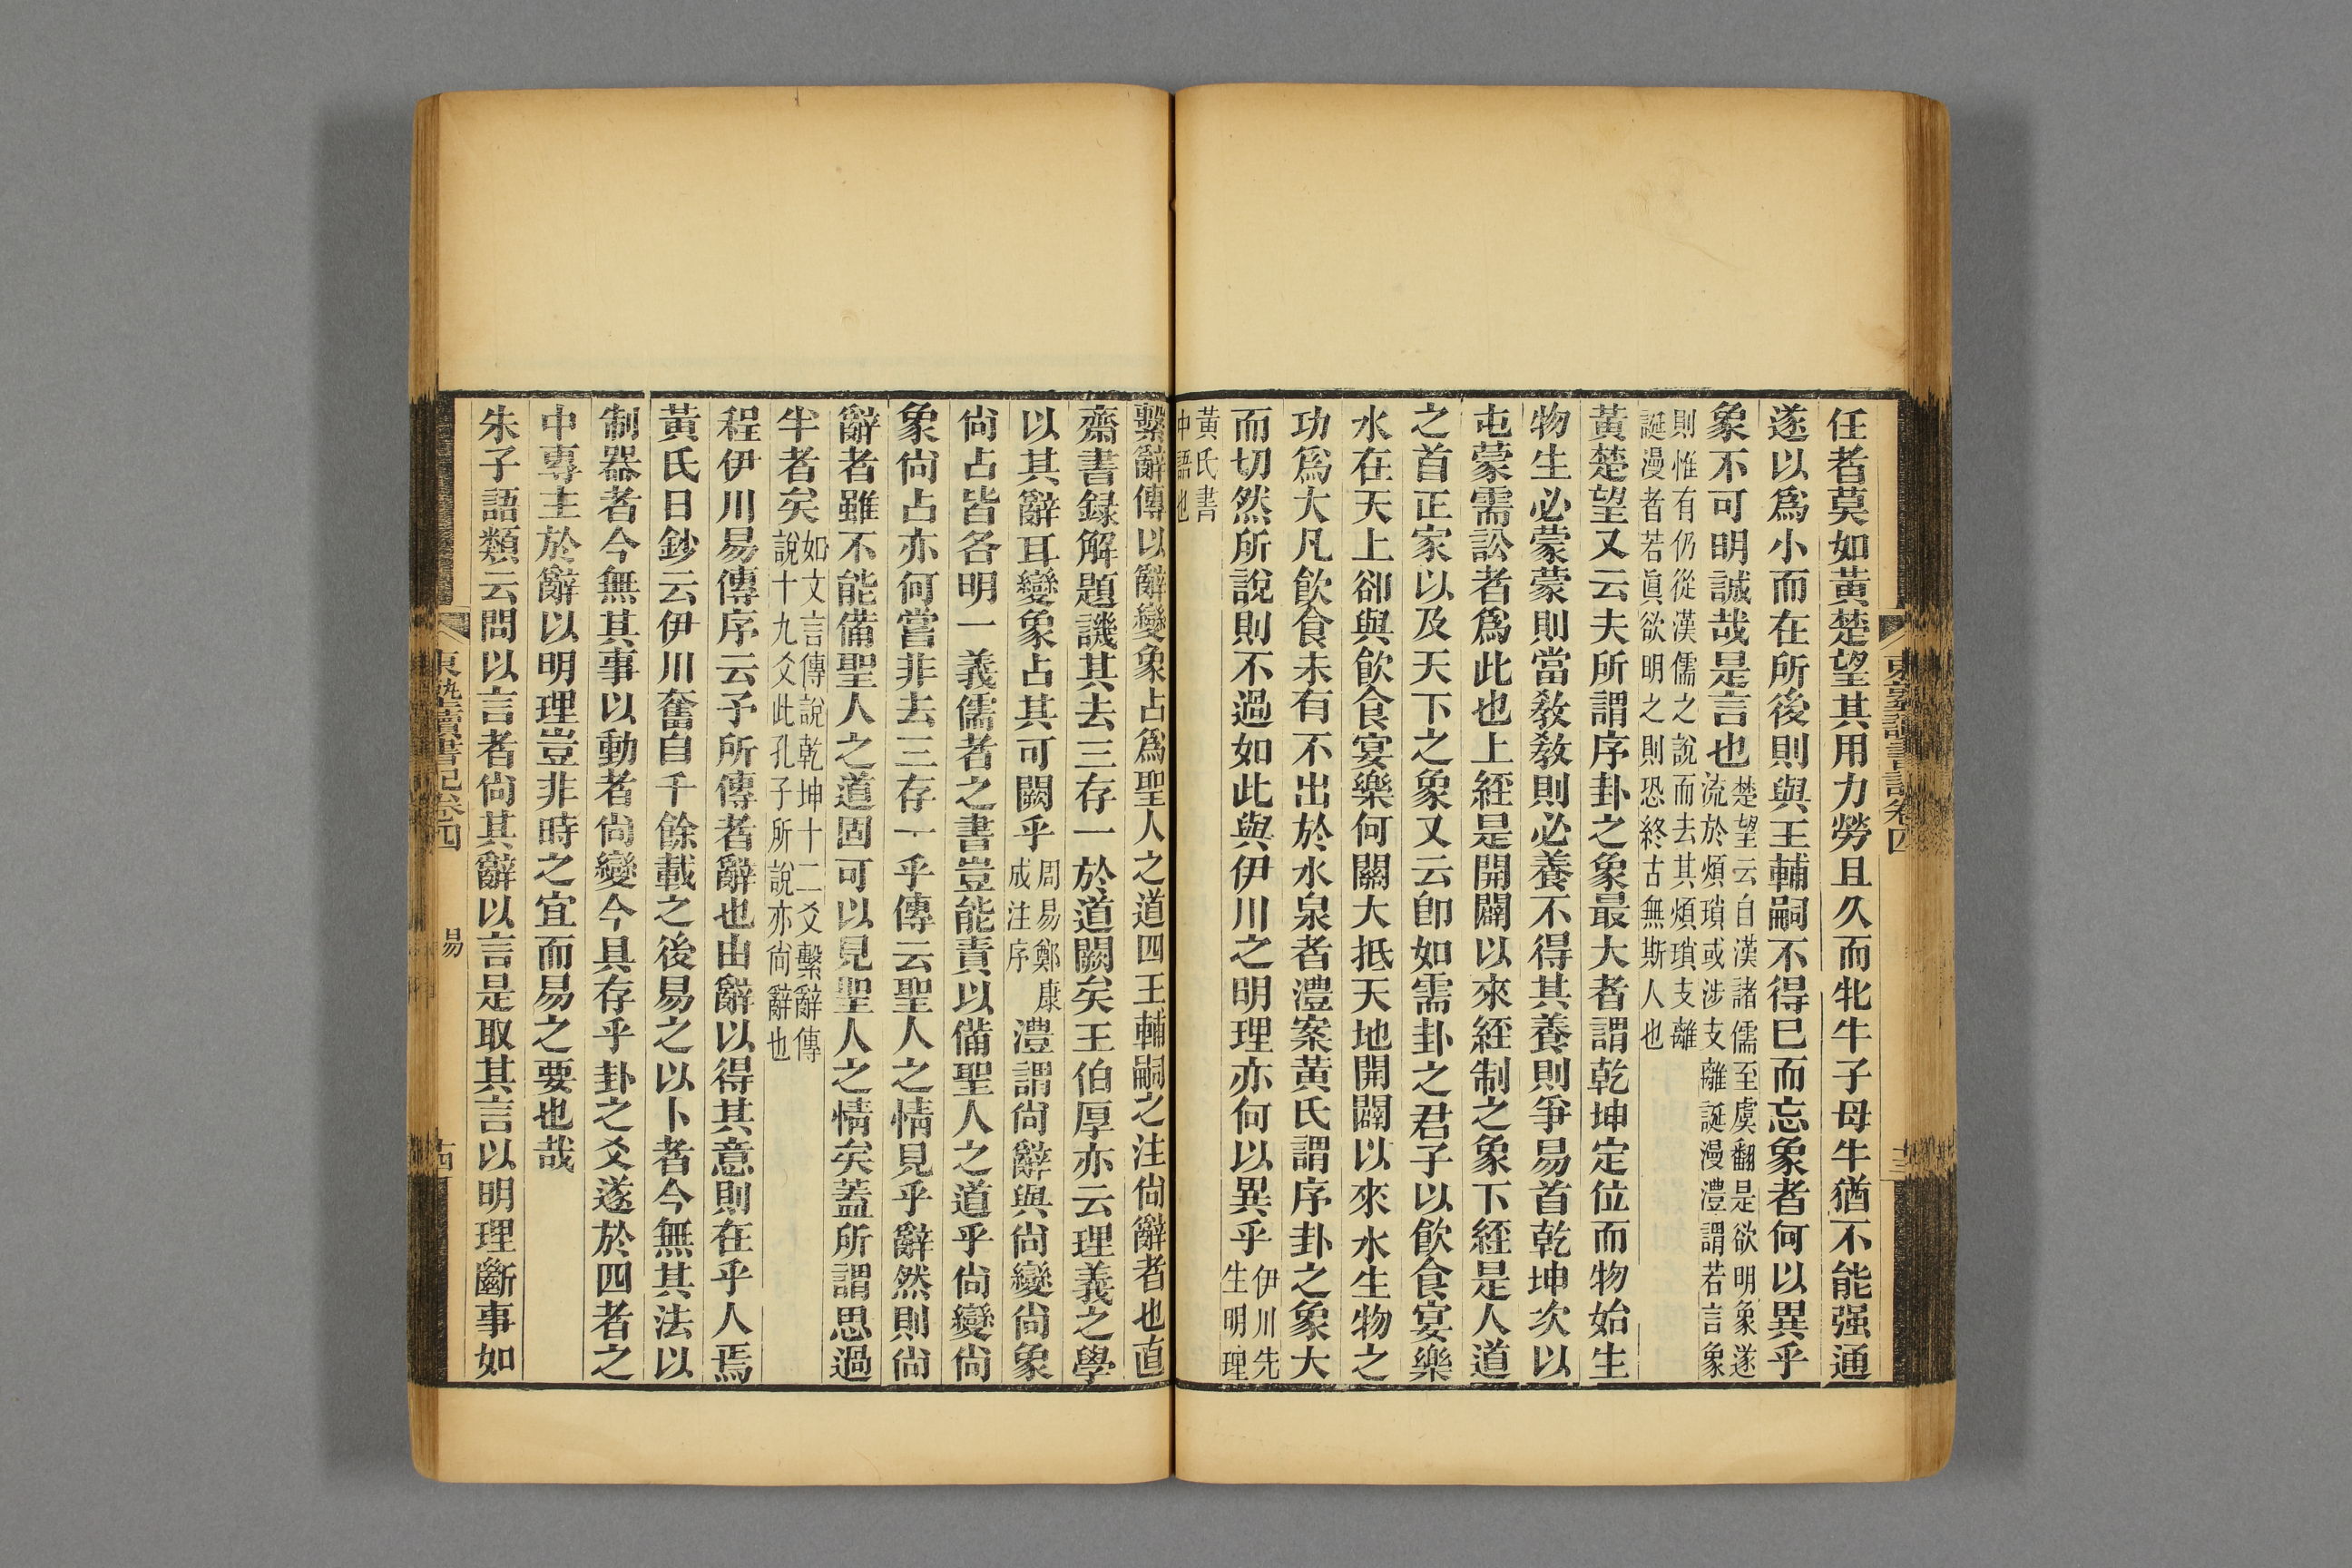 任者莫如黃楚望其用力勞且久而牝牛子母牛猶不能强通
遂以爲小而在所後則與王輔嗣不得已而忘象者何以異乎
象不可明誠哉是言也楚望云自漢諸儒至虞翻是欲明象遂
流於煩瑣或涉支離誕漫澧謂若言象
則惟有仍從漢儒之說而去其煩瑣支離
誕漫者若眞欲明之則恐終古無斯人也
黃楚望又云夫所謂序卦之象最大者謂乾坤定位而物始生
物生必蒙蒙則當敎敎則必養不得其養則爭易首乾坤次以
屯蒙需訟者爲此也上經是開闢以來經制之象下經是人道
之首正家以及天下之象又云卽如需卦之君子以飮食宴樂
水在天上卻與飮食宴樂何關大抵天地開闢以來水生物之
功爲大凡飮食未有不出於水泉者澧案黃氏謂序卦之象大
而切然所說則不過如此與伊川之明理亦何以異乎伊川先
生明理
黃氏書
中語也
繫辭傳以辭變象占爲聖人之道四王輔嗣之注尙辭者也直
齋書録解題譏其去三存一於道闕矣王伯厚亦云理義之學
以其辭耳變象占其可闕乎周易鄭康
成注序澧謂尙辭與尙變尙象
尙占皆各明一義儒者之書豈能責以備聖人之道乎尙變尙
象尙占亦何嘗非去三存一乎傳云聖人之情見乎辭然則尙
辭者雖不能備聖人之道固可以見聖人之情矣蓋所謂思過
半者矣如文言傳說乾坤十二爻繫辭傳
說十九爻此孔子所說亦尙辭也
程伊川易傳序云予所傳者辭也由辭以得其意則在乎人焉
黃氏日鈔云伊川奮自千餘載之後易之以卜者今無其法以
制器者今無其事以動者尙變今具存乎卦之爻遂於四者之
中專主於辭以明理豈非時之宜而易之要也哉
朱子語類云問以言者尙其辭以言是取其言以明理斷事如
東塾讀書記卷四
易
十四